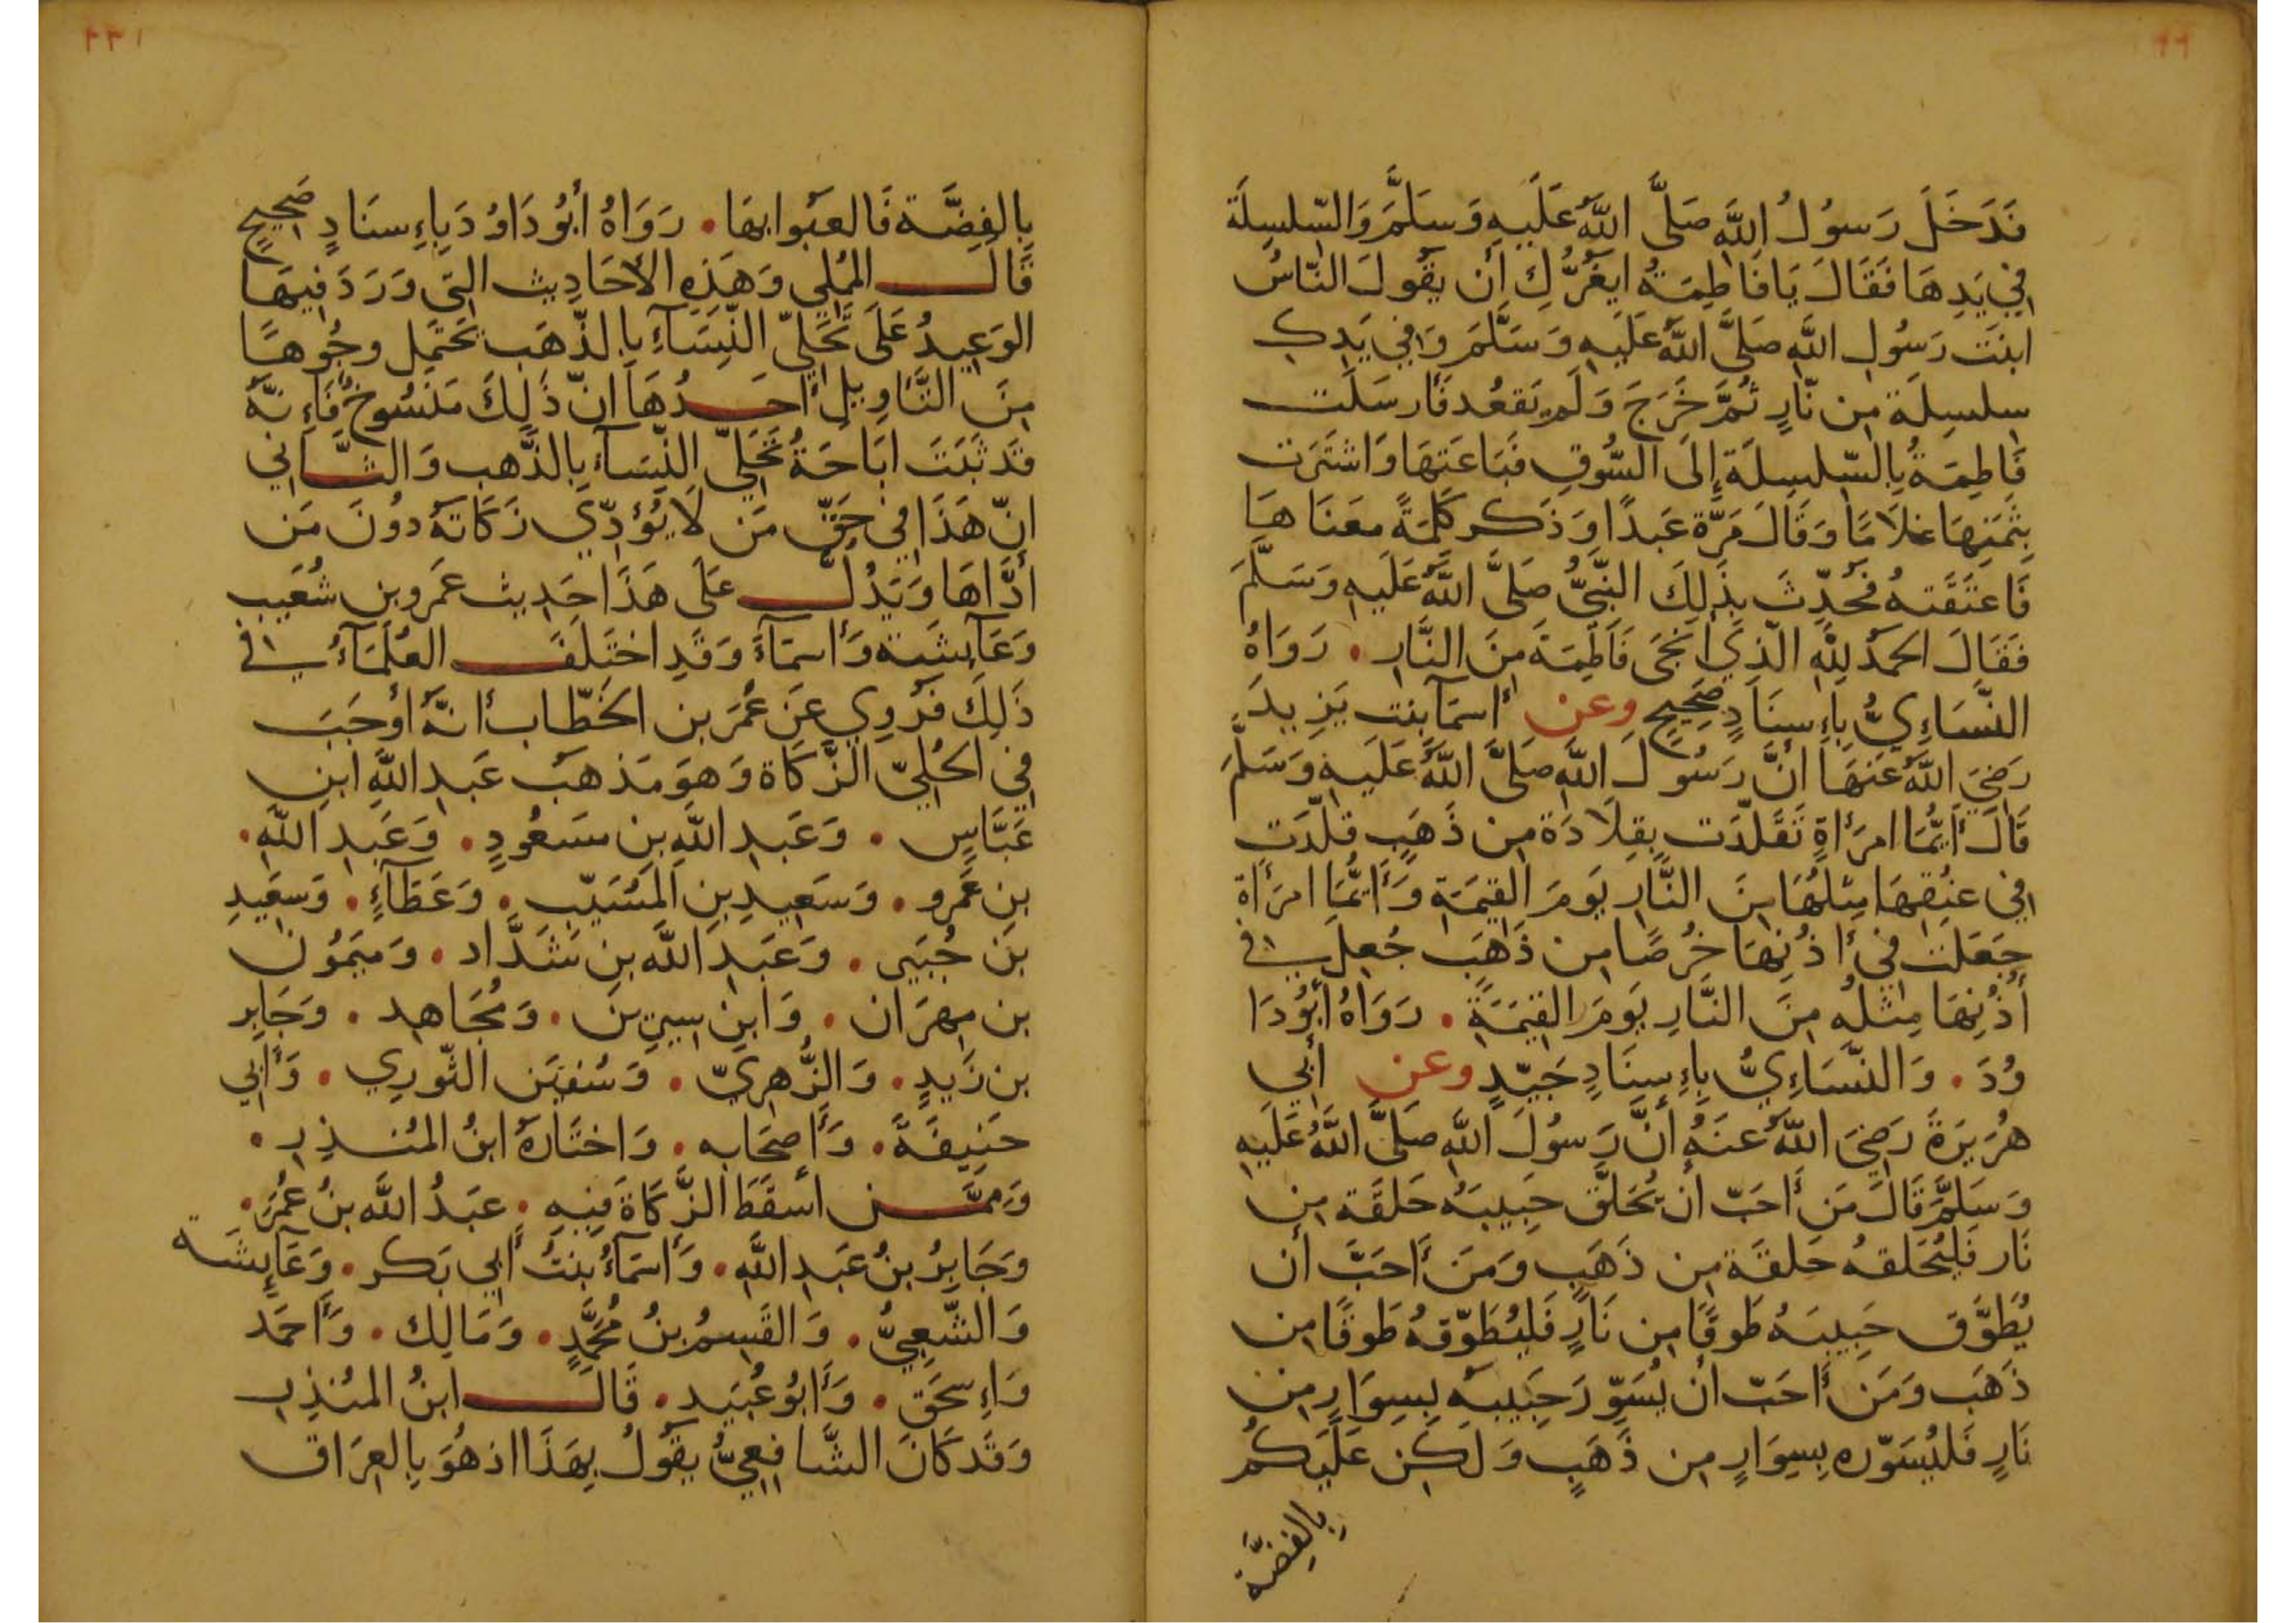 ٩٩
فَدَخَلَ رَسُولُ اللَّهِ صَلَّى اللَّهُ عَلَيهِ وَسَلَّمَ وَالسِّلسِلَة
فِي يَدِهَا فَقَالَ يَا فَاطِمَةُ ايَغُرُّكِ أَن يَقُولَ النَّاسُ
ابنَت رَسُولِ اللَّهِ صَلَّى اللَّهُ عَلَيهِ وَسَلَّمَ وَفِي يَدِكِ
سِلسِلَة مِن نَّارٍ ثُمَّ خَرَجَ وَلَم يَقعُد فَأَرسَلَت
فَاطِمَةُ بِالسِّلسِلَة إِلَى السُّوقِ فَبَاعَتهَا وَاشتَرَت
بِثَمَنِهَا غلَامًا وَقَالَ مَرَّة عَبدًا وَذَكر كَلِمَةً معَنَاهَا
فَاعتَقَتهُ فَحُدِّثَ بِذَلِكَ النَّبِيُّ صَلَّى اللَّهُ عَلَيهِ وَسَلَّمَ
فَقَالَ الحَمدُ لِلَّهِ الَّذِي أَنجَى فَاطِمَةَ مِنَ النَّارِ . رَوَاهُ
النَّسَاءِيُّ بِإِسنَادٍ صَحِيحٍ وعن أسمَا بِنتِ يَزِيدَ
رَضِيَ اللَّهُ عَنهَا أنَّ رَسُولَ اللَّهِ صَلَّى اللَّهُ عَلَيهِ وَسَلَّمَ
قَالَ أَيُّمَا امرَأَةٍ تَقَلَّدَت بِقِلَادَة مِن ذَهَبٍ قلّدَت
فِي عنُقِهَا مِثلهَا مِنَ النَّارِ يَومَ القِيمَةِ وَأَيُّمَا امرَأَة
جَعَلَت فِي أُذُنِهَا خُرصًا مِن ذَهَب جُعِلَ فِي
أُذُنِهَا مِثلُه مِنَ النَّارِ يَومَ القِيمَةِ . رَوَاهُ أَبُودَا
وُدَ . وَالنَّسَاءِيُّ بِإِسنَادٍ جَيِّدٍ وعن أَبِي
هُرَيرَةَ رَضِيَ اللَّهُ عَنهُ أَنَّ رَسُولَ اللَّهِ صَلَّى اللَّهُ عَلَيهِ
وَسَلَّمَ قَالَ مَن أَحَبّ أَن يُحَلَّق حَبِيبَهُ حَلقَة مِن
نَار فَليُحَلقهُ حَلقَة مِن ذَهَبٍ وَمَن أَحَبَّ أَن
يُطَوَّق حَبِيبَهُ طَوقًا مِن نَارٍ فَليُطَوِّقهُ طَوقًا مِن
ذَهَب وَمَن أَحَبّ أن يُسَوِّرَ حَبِيبَه بِسِوَارٍ مِن
نَارٍ فَليُسَوِّره بِسِوَارٍ مِن ذَهَبٍ وَلَكِن عَلَيكُم
بِالفِضَّة
بِالفِضَّة فَالعَبُوا بهَا . رَوَاهُ أَبُو دَاوُدَ بِإِسنَادٍ صَحِيحٍ
قَالَ المُملِي وَهَذِهِ الأَحَادِيث الَّتِي وَرَدَ فِيهَا
الوَعِيدُ عَلَى تَحَلِّي النِّسَآءِ بِالذَّهَب تَحتَمِل وجُوهًا
مِنَ التَّاوِيلِ أَحَدُهَا انّ ذَلِكَ مَنسُوخٌ فَإِنَّهُ
قَد ثَبَتَ ابَاحَةُ تَحَلِّي النِّسَآء بِالذَّهب وَالثَّانِي
انّ هَذَا فِي حَقّ مَن لَا يُؤَدِّي زَكَاتَهُ دُونَ مَن
أدَّاهَا وَيَدُلّ عَلَى هَذَا حَدِيث عَمَرو بن شُعَيب
وَعَآيِشَة وَأَسمَآءَ وَقَدِ اختَلَفَ العُلَمَآءُ فِي
ذَلِكَ فَرُوِي عَن عُمَرَ بن الخَطَّاب أَنَّهُ أَوجَبَ
فِي الحُلِيّ الزَّكَاة وَهوَ مَذهَب عَبدِ اللَّهِ ابنِ
عَبَّاسٍ . وَعَبدِ اللَّهِ بنِ مسَعُودٍ . وَعَبدِ اللَّهِ .
بنِ عَمرو . وَسَعِيدِ بنِ المُسَيّب . وَعَطَآءٍ . وَسَعِيدِ
بن جُبَيرٍ . وَعَبدِ اللَّه بنِ شَدَّاد . وَمَيمُون
بن مِهرَان . وَابنِ سِيرِين . وَمُجَاهِد . وَجَابِر
بن زَيدٍ . وَالزُّهرِيّ . وَسُفيَن الثَّورِي . وَأَبِي
حَنِيفَةَ . وَأَصحَابِه . وَاختَارَهُ ابنُ المُنذِرِ .
وَمِمَّن أسقَطَ الزَّكَاةَ فِيهِ . عَبدُ اللَّه بنُ عُمَرَ .
وَجَابِرُ بنُ عَبدِ اللَّهِ . وَأَسمَآءُ بنتُ أَبِي بَكر . وَعَآيِشَة
وَالشَّعبِيُّ . وَالقَسِمُ بنُ مُحَمَّدٍ . وَمَالِك . وَأَحمَد
وَإِسحَق . وَأَبُو عُبَيد . قَالَ ابنُ المُنذِرِ
وَقَد كَانَ الشَّافِعِيُّ يَقُولُ بِهَذَا اذ هُوَ بِالعِرَاق